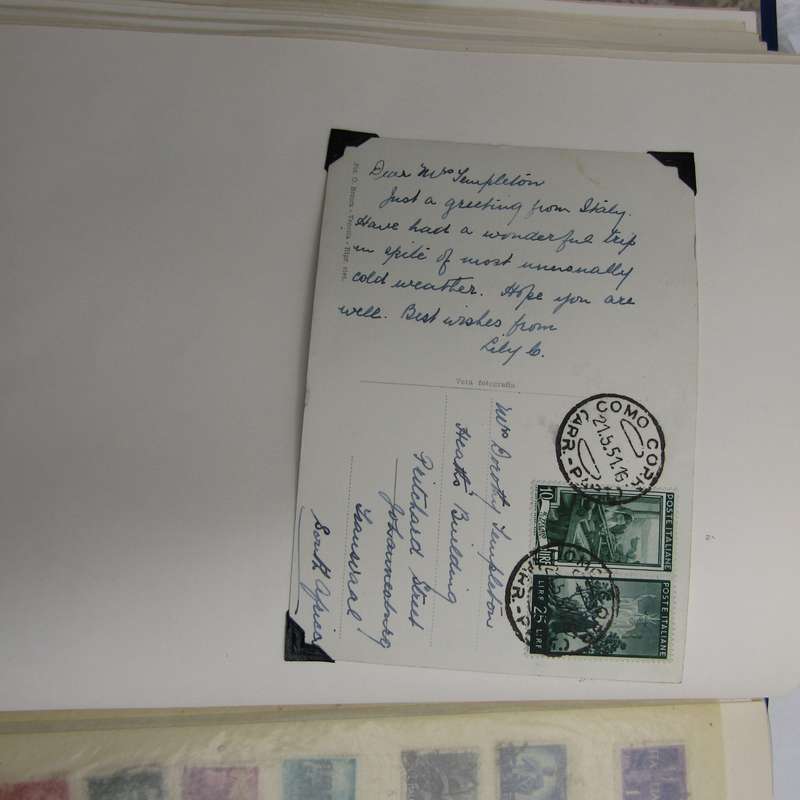 Dear Mrs Templeton
Just a greeting from Italy.
Have had a wonderful trip
in spite of most unusually
cold weather. Hope you are
well. Best wishes from
Lily C.
Vera fotografia
Mrs Dorothy Templeton
Heath's Building
Pritchard Street
Johannesburg
Transvaal
South Africa
COMO CORR
21.5.51.16
ARR.-P
POSTE ITALIANE
10
LIRE
POSTE ITALIANE
LIRE 25 LIRE